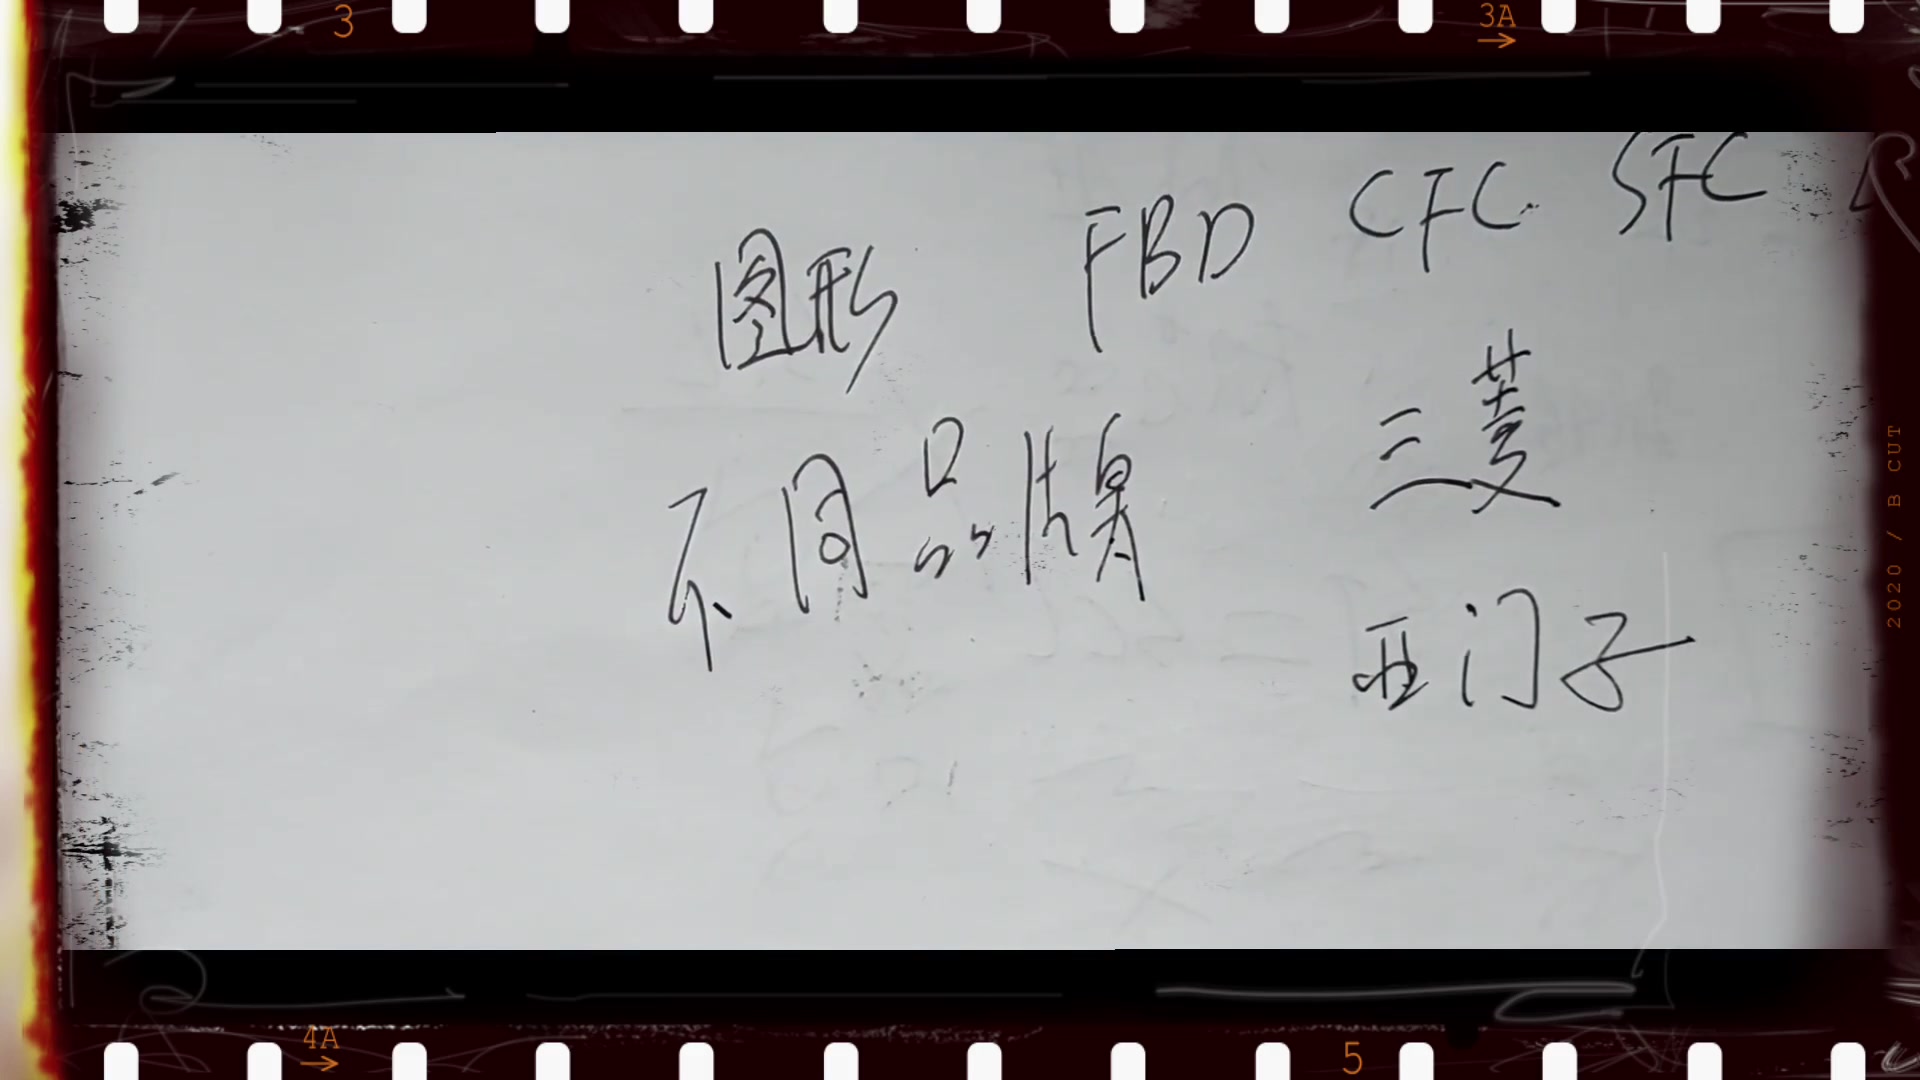 3 3A
图形 FBD CFC SFC
不同品牌 三菱
西门子
2020 / B CUT
4A 5